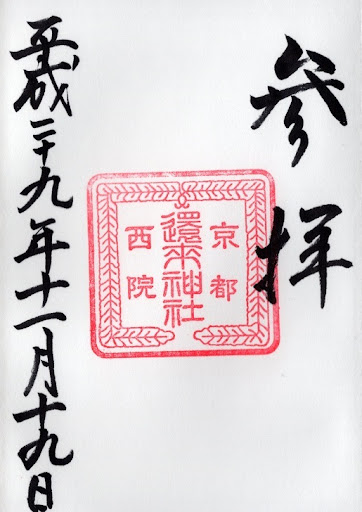 参拝
京都
還来神社
西院
平成二十九年十一月十九日